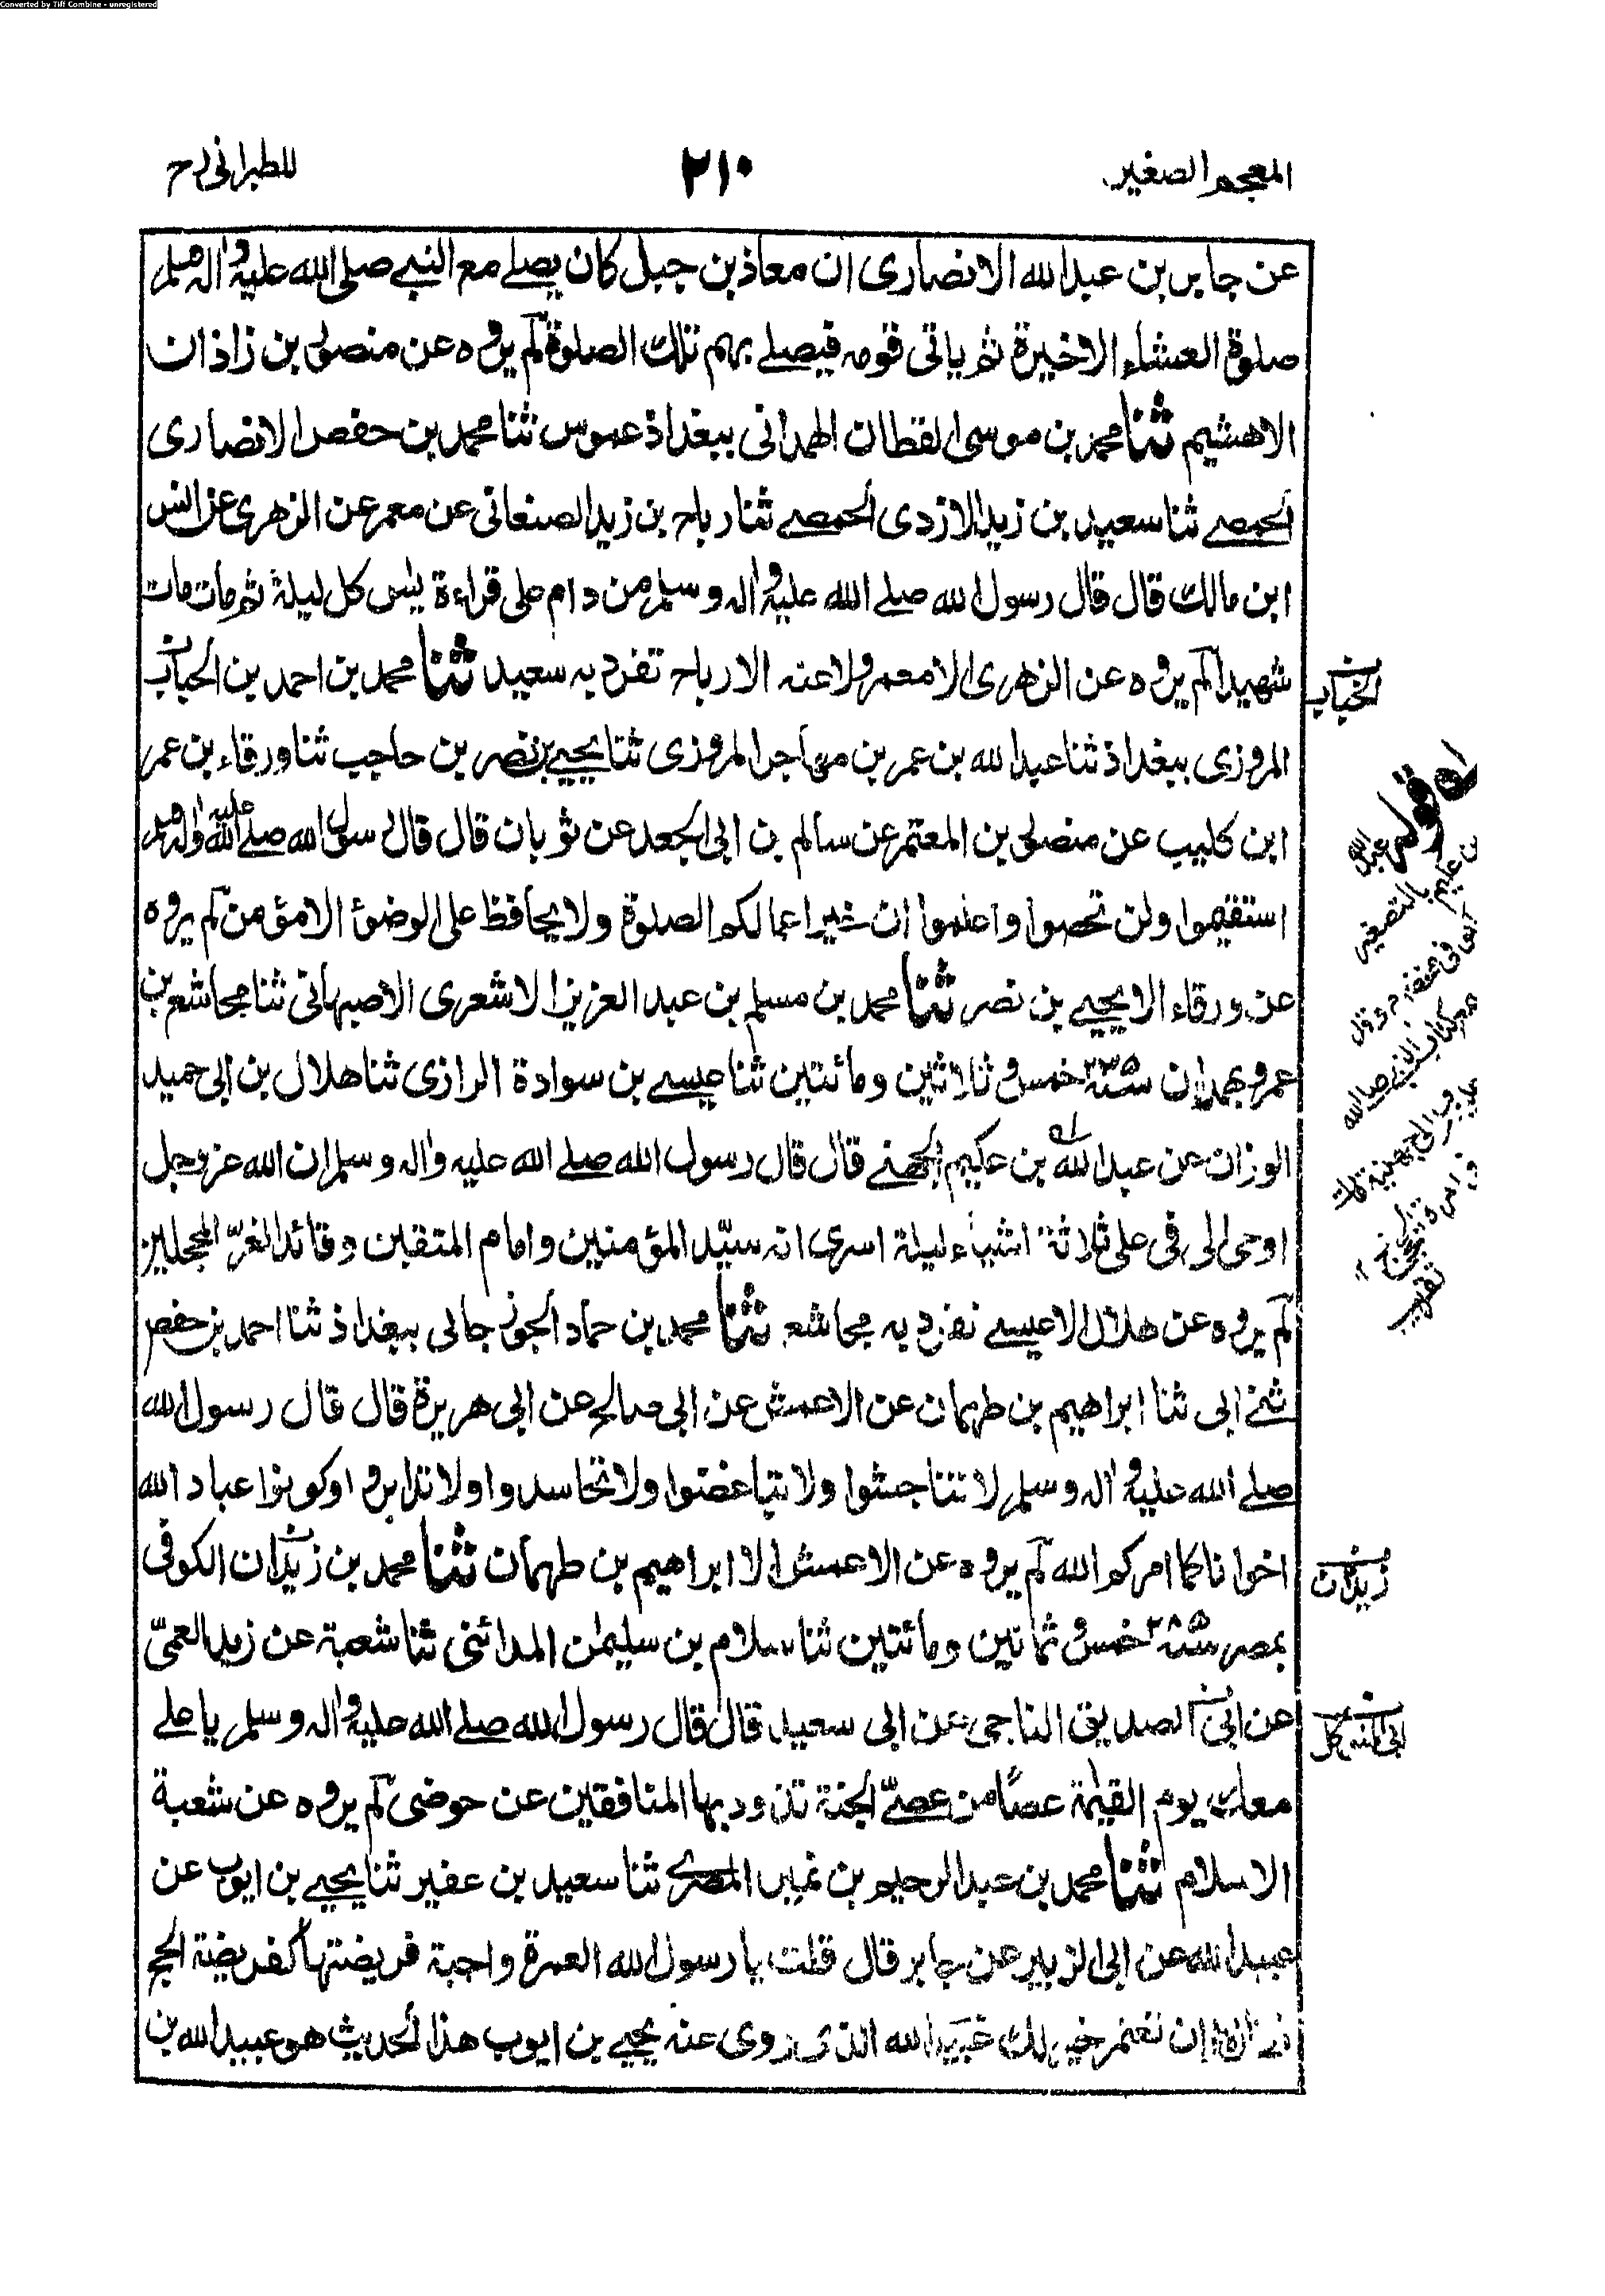 Converted by Tiff Combine - unregistered
المعجم الصغير
٢١٠
للطبرانی رح
عن جابر بن عبد الله الانصاری ان معاذ بن جبل کان یصلے مع النبے صلی الله علیه واله وسلم
صلوة العشاء الاخیرة ثم یاتی قومه فیصلے بهم تلك الصلوة لم یروه عن منصور بن زاذان
الاهشیم ثنا محمد بن موسی القطان الهمدانی ببغداذ ثنا محمد بن حفص الانصاری
الحمصے ثنا سعید بن زید الازدی الحمصے ثنا رباح بن زید الصنعانی عن معمر عن الزهری عن انس
ابن مالك قال قال رسول الله صلے الله علیه واله وسلم من دام علی قراءة یٰس کل لیلة ثم مات مات
شهیدا لم یروه عن الزهری الا معمر ولا عنه الا رباح تفرد به سعید ثنا محمد بن احمد بن الحباب
المروزی ببغداذ ثنا عبد الله بن عمر بن مهاجر المروزی ثنا یحیے بن نصر بن حاجب ثنا ورقاء بن عمر
ابن کلیب عن منصور بن المعتمر عن سالم بن ابی الجعد عن ثوبان قال قال رسول الله صلے الله علیه واله وسلم
استقیموا ولن تحصوا واعلموا ان خیر اعمالکم الصلوة ولا یحافظ علی الوضوٴ الا مؤمن لم یروه
عن ورقاء الا یحیے بن نصر ثنا محمد بن مسلم بن عبد العزیز الاشعری الاصبهانی ثنا مجاشع بن
عمرو بهمدان سنة ٢٣٥ خمس وثلاثین ومائتین ثنا عیسے بن سوادة الرازی ثنا هلال بن ابی حمید
الوزان عن عبد الله بن عکیم الجهنے قال قال رسول الله صلے الله علیه واله وسلم ان الله عز وجل
اوحی الی فی علی ثلاثة اشیاء لیلة اسری انه سیّد المؤمنین وامام المتقین وقائد الغرّ المحجلین
لم یروه عن هلال الا عیسے تفرد به مجاشع ثنا محمد بن حماد الجوزجانی ببغداذ ثنا احمد بن حفص
ثنے ابی ثنا ابراهیم بن طهمان عن الاعمش عن ابی صالح عن ابی هریرة قال قال رسول الله
صلے الله علیه واله وسلم لا تناجشوا ولا تباغضوا ولا تحاسدوا ولا تدابروا وکونوا عباد الله
اخوانا کما امرکم الله لم یروه عن الاعمش الا ابراهیم بن طهمان ثنا محمد بن زیدان الکوفی
بمصر سنة ٢٨٥ خمس وثمانین ومائتین ثنا سلام بن سلیمٰن المدائنی ثنا شعبة عن زید العمیّ
عن ابی الصدیق الناجی عن ابی سعید قال قال رسول الله صلے الله علیه واله وسلم یا علے
معك یوم القیٰمة عصًا من عصیّ الجنة تذود بها المنافقین عن حوضی لم یروه عن شعبة
الا سلام ثنا محمد بن عبد الرحیم بن نمیر المصرے ثنا سعید بن عفیر ثنا یحیے بن ایوب عن
عبید الله عن ابی الزبیر عن جابر قال قلت یا رسول الله العمرة واجبة فریضتها کفریضة الحج
ان تعتمر خیر لك عبید الله الذی روی عنه یحیے بن ایوب هذا الحدیث هو عبید الله بن
الخباب
قوله عبد الله
بن عکیم بالتصغیر
زیدان
تقریب